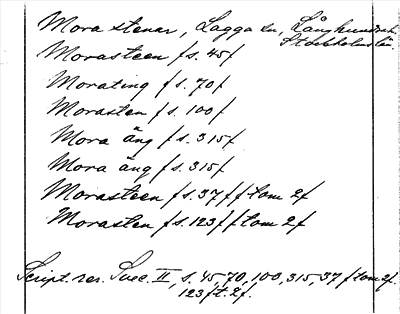 Mora stenar, Lagga sn, Långhundradh.
Stockholms län.
Morasteen f s. 45 f
Morating f s. 70 f
Morasten f s. 100 f
Mora äng f s. 315 f
Mora äng f s. 315 f
Morasteen f s. 37 f f tom 2 f
Morasten f s. 123 f f tom 2 f
Script. rer. Svec. II, s. 45, 70, 100, 315, 37 f tom 2 f.
123 f t. 2 f.